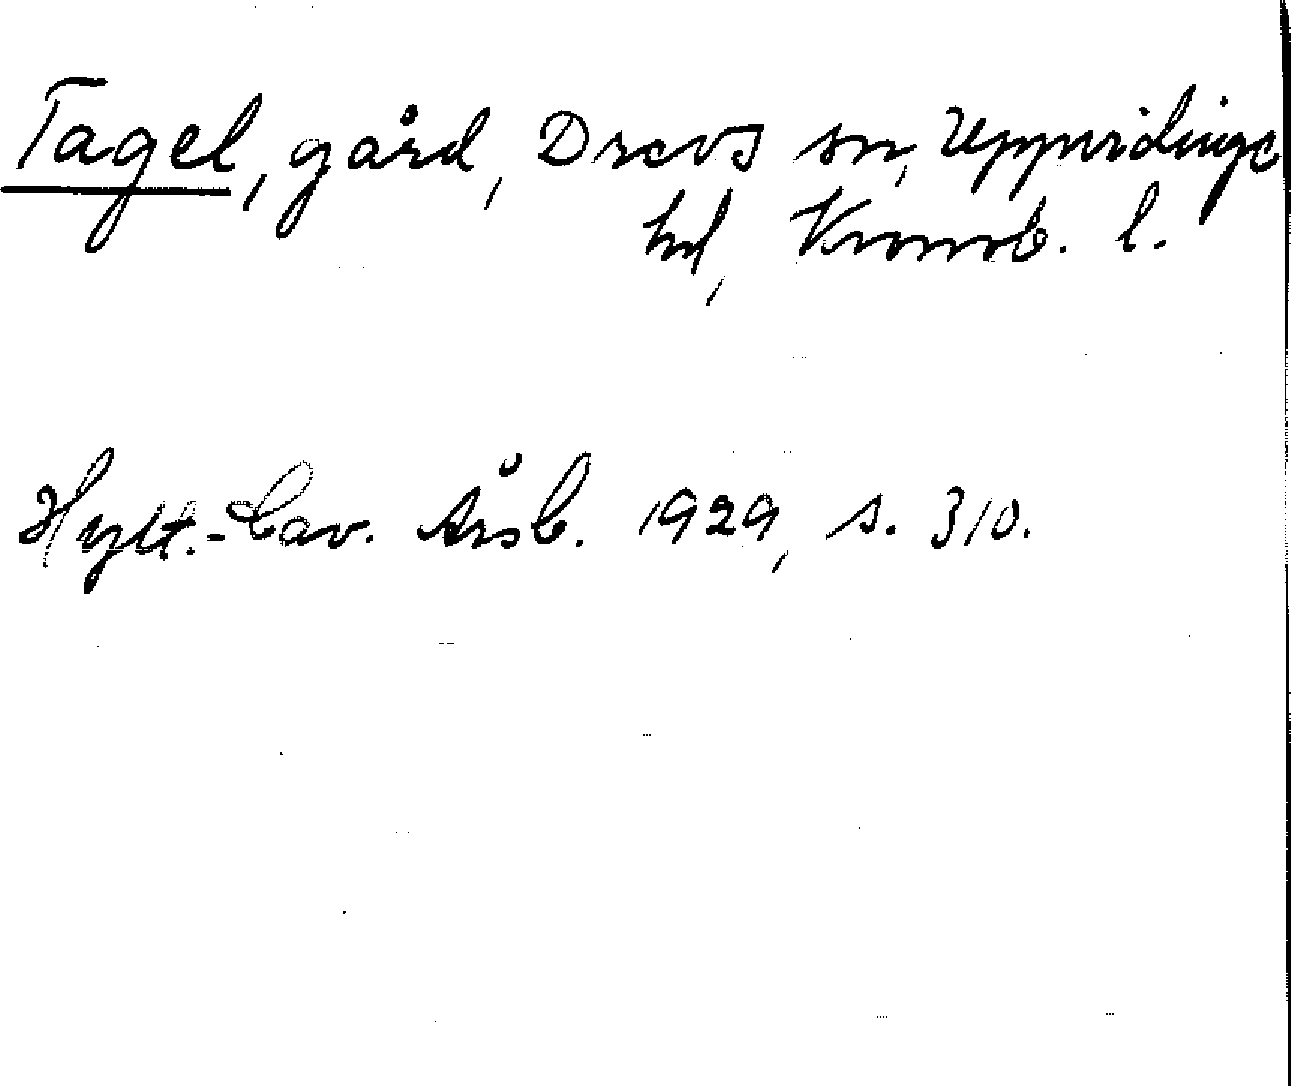 Tagel, gård, Drevs sn, Uppvidinge
hd, Kronob. l.
Hylt.-Cav. Årsb. 1929, s. 310.